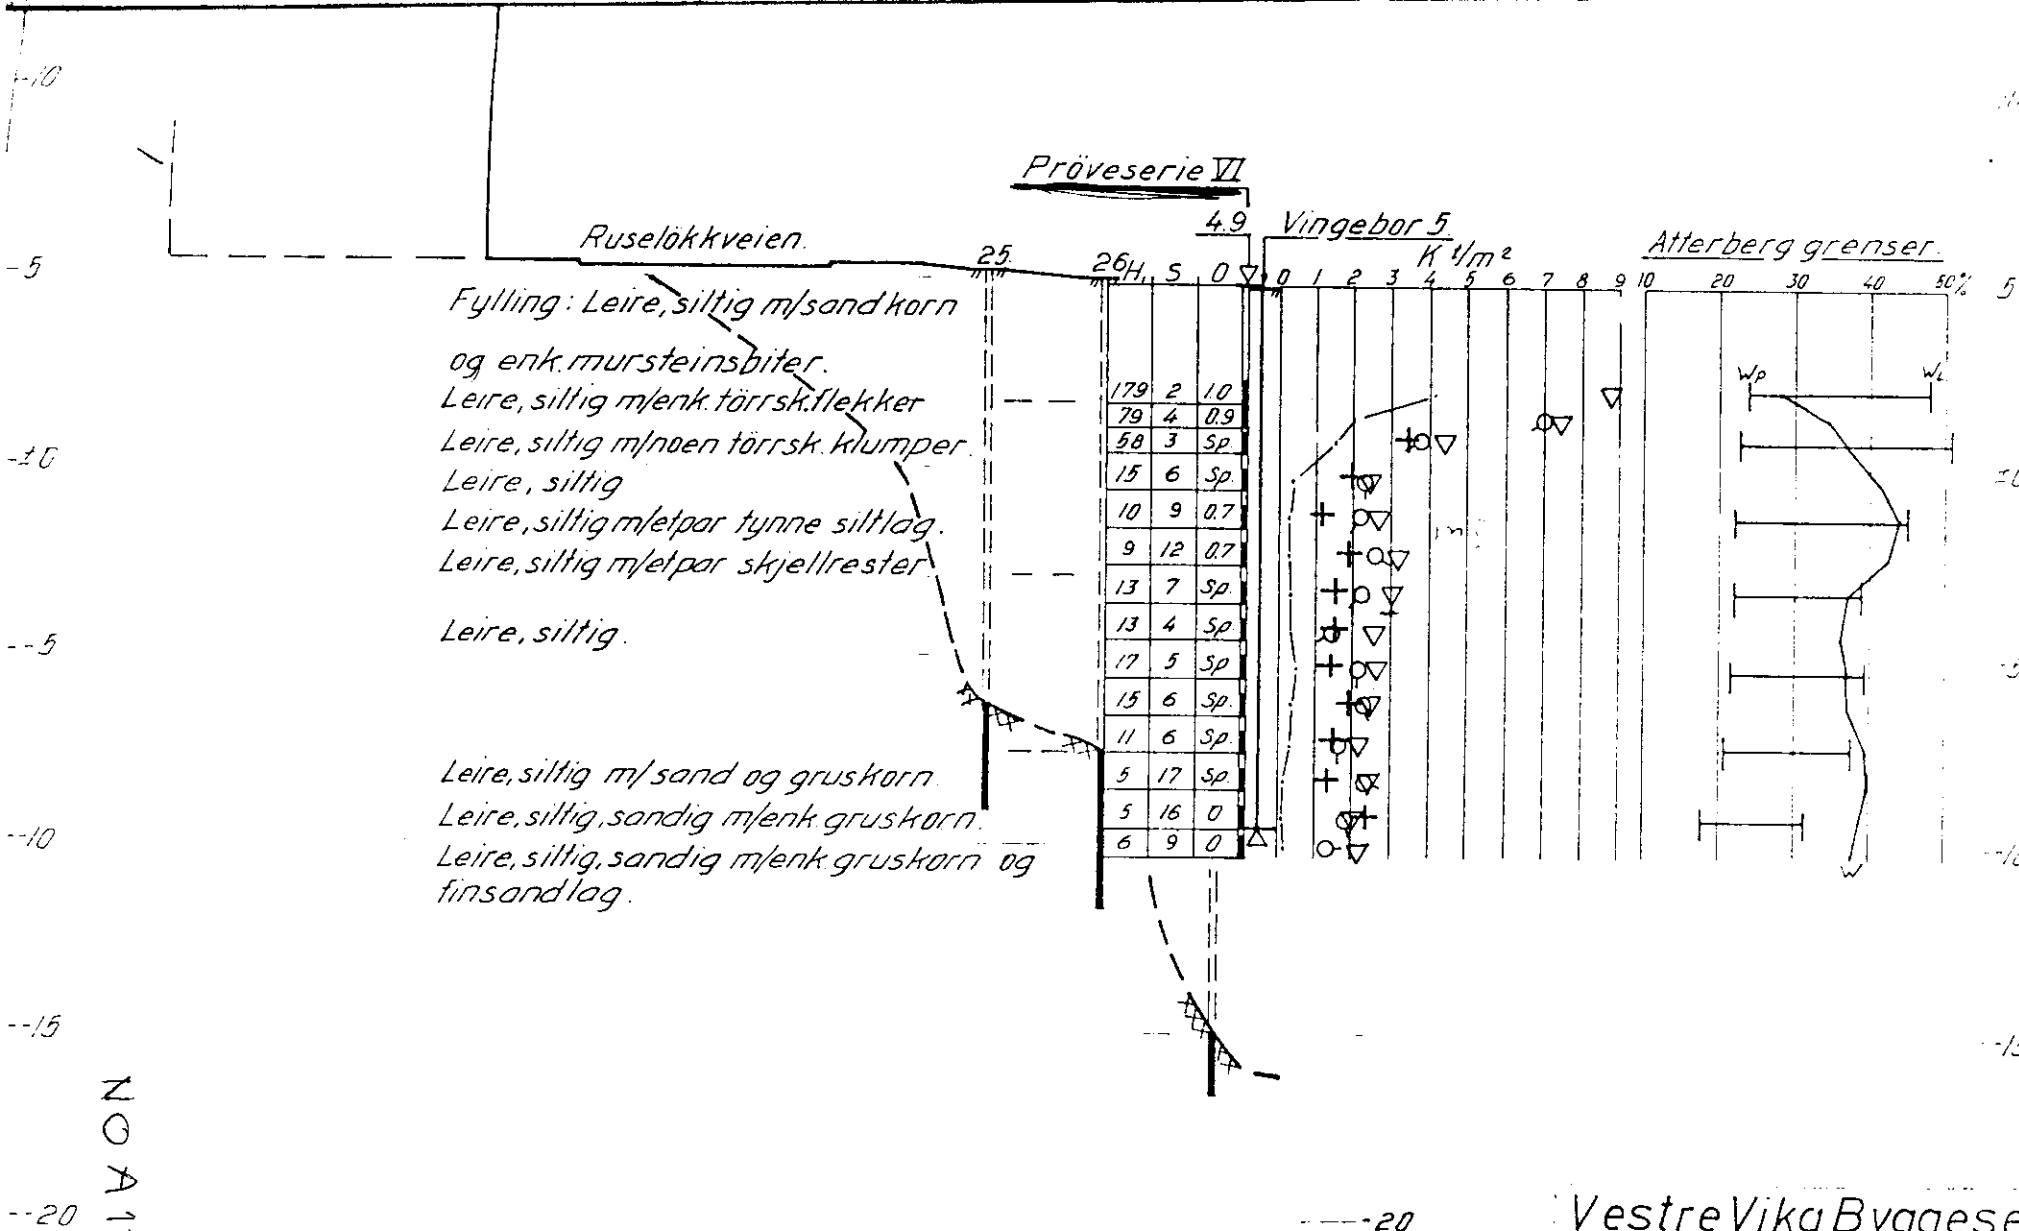 -10
Pröveserie VI
4.9
Vingebor 5.
Ruselökkveien.
25.
26
H₁ S O
K t/m²
0 1 2 3 4 5 6 7 8 9
Atterberg grenser.
10 20 30 40 50%
-5
5
Fylling: Leire, siltig m/sandkorn
og enk. mursteinsbiter.
Leire, siltig m/enk. törrsk. flekker
Leire, siltig m/noen törrsk. klumper.
Leire, siltig
Leire, siltig m/etpar tynne siltlag.
Leire, siltig m/etpar skjellrester.
Leire, siltig.
Leire, siltig m/sand og gruskorn.
Leire, siltig, sandig m/enk. gruskorn.
Leire, siltig, sandig m/enk gruskorn og
finsandlag.
179 2 1.0
79 4 0.9
58 3 Sp.
15 6 Sp.
10 9 0.7
9 12 0.7
13 7 Sp.
13 4 Sp.
17 5 Sp
15 6 Sp.
11 6 Sp.
5 17 Sp.
5 16 0
6 9 0
Wp
WL
W
-±0
--5
--10
--15
--20
-5
-10
-15
---20
NO A1
Vestre Vika Byggese